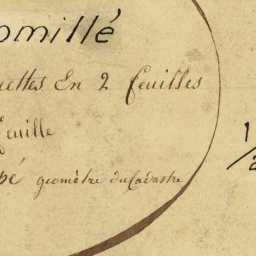 omillé
uettes En 2 feuilles
feuille
pé geomètre du Cadastre
1/2